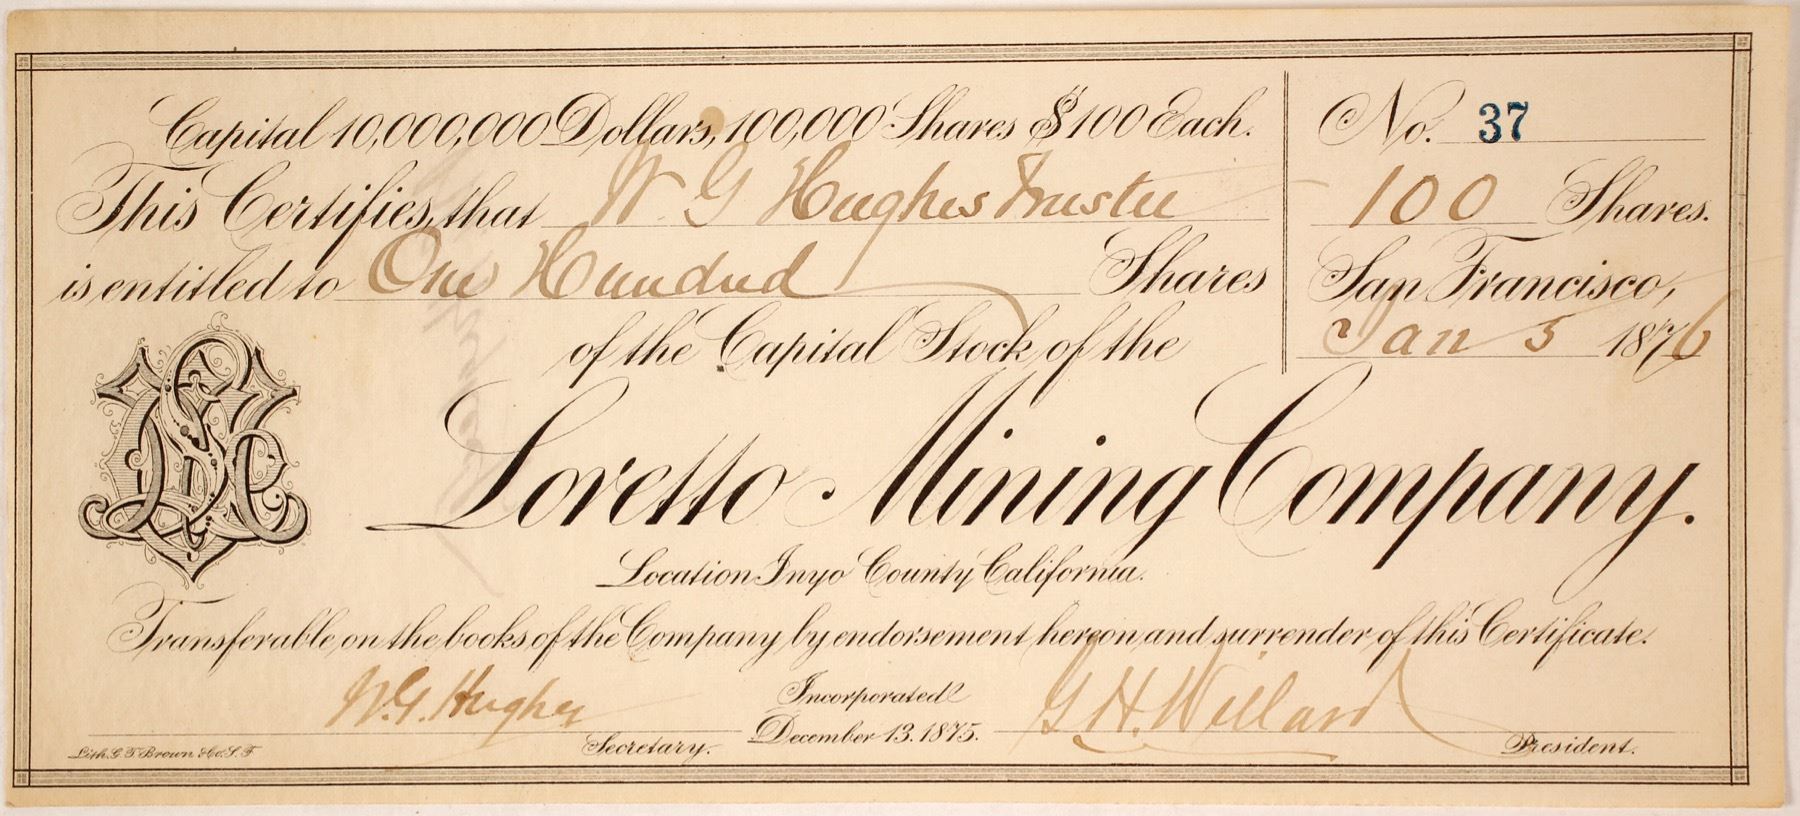 Capital 10,000,000 Dollars, 100,000 Shares $100 Each.
This Certifies, that W. G Hughes Trustee
is entitled to One Hundred Shares
of the Capital Stock of the
Loretto Mining Company.
Location Inyo County California.
Transferable on the books of the Company by endorsement hereon and surrender of this Certificate.
No. 37
100 Shares.
San Francisco,
Jan 5 1876
W. G. Hughes
Secretary.
Incorporated
December 13. 1875.
G H. Willard
President.
Lith. G. T. Brown & Co. S. F.